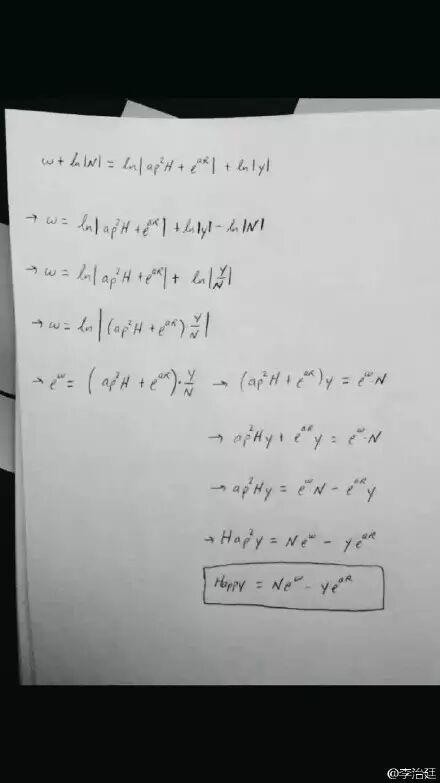 w + ln|N| = ln|ap²H + e^{aR}| + ln|y|
→ w = ln|ap²H + e^{aR}| + ln|y| - ln|N|
→ w = ln|ap²H + e^{aR}| + ln|y/N|
→ w = ln|(ap²H + e^{aR})·y/N|
→ e^w = (ap²H + e^{aR})·y/N → (ap²H + e^{aR})y = e^w·N
→ ap²Hy + e^{aR}y = e^w·N
→ ap²Hy = e^w N - e^{aR}y
→ Hap²y = Ne^w - ye^{aR}
Happy = Ne^w - ye^{aR}
@李治廷